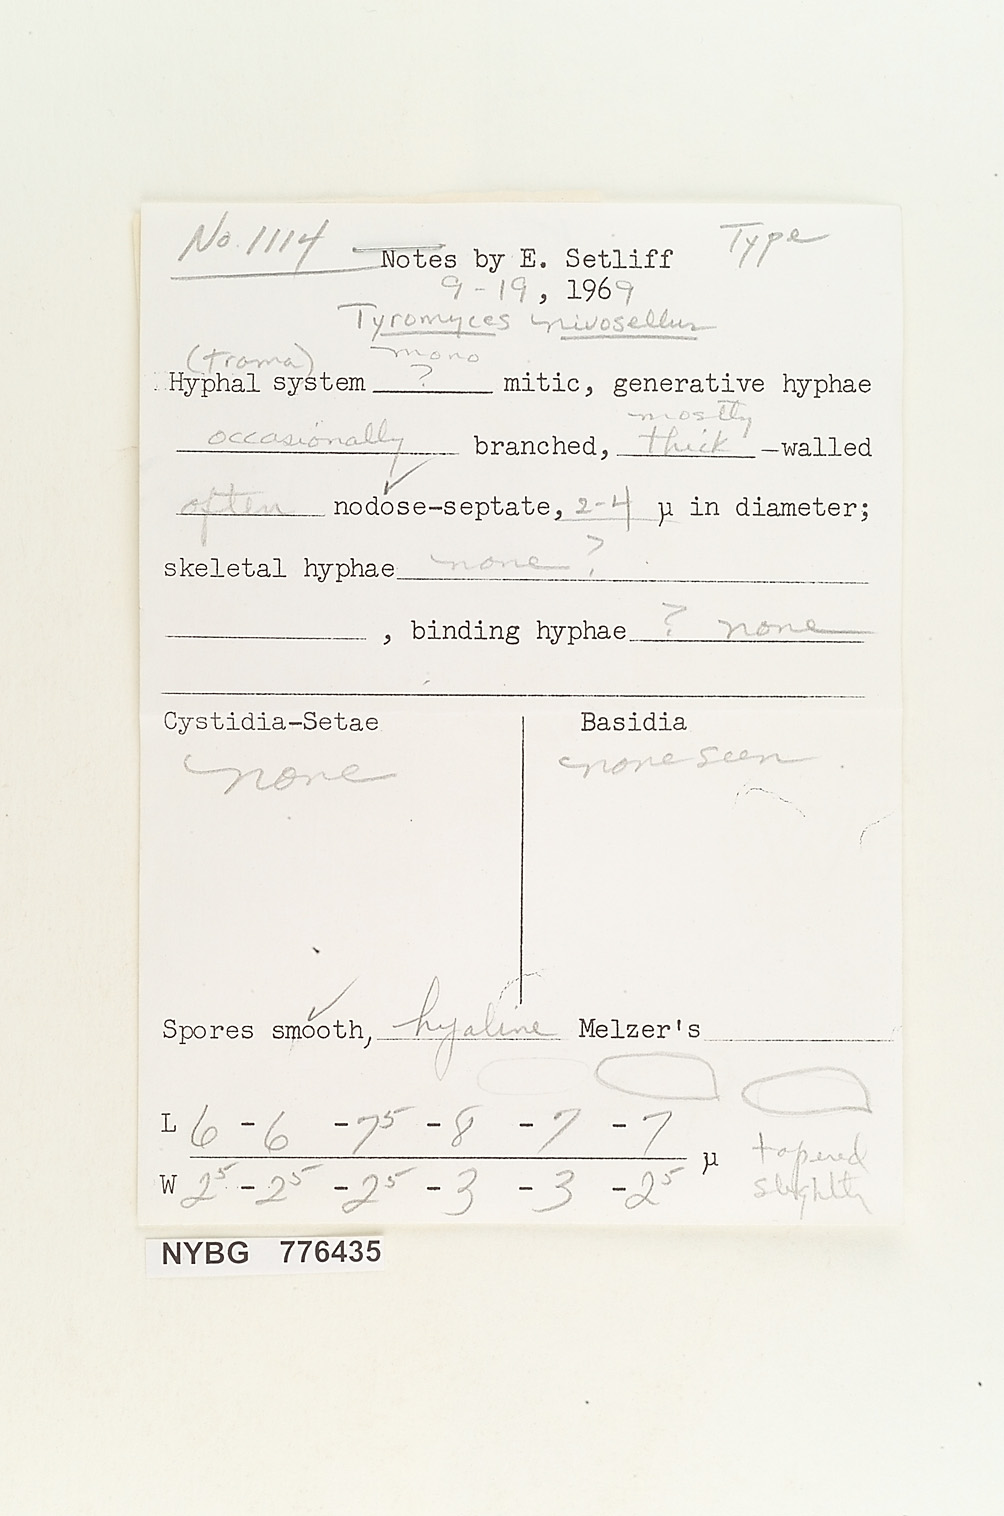 No. 1114
Type
Notes by E. Setliff
9-19, 1969
Tyromyces nivosellus
(trama) mono
Hyphal system ? mitic, generative hyphae
mostly
occasionally branched, thick -walled
often nodose-septate, 2-4 µ in diameter;
skeletal hyphae none ?
, binding hyphae ? none
Cystidia-Setae Basidia
none none seen
Spores smooth, hyaline Melzer's
L 6 - 6 - 7⁵ - 8 - 7 - 7
µ
W 2⁵ - 2⁵ - 2⁵ - 3 - 3 - 2⁵
tapered
slightly
NYBG 776435